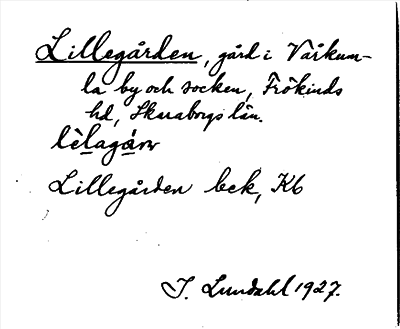 Lillegården, gård i Vårkum-
la by och socken, Frökinds
hd, Skaraborgs län.
lèlagárn
Lillegården bek, Kb
I. Lundahl 1927.